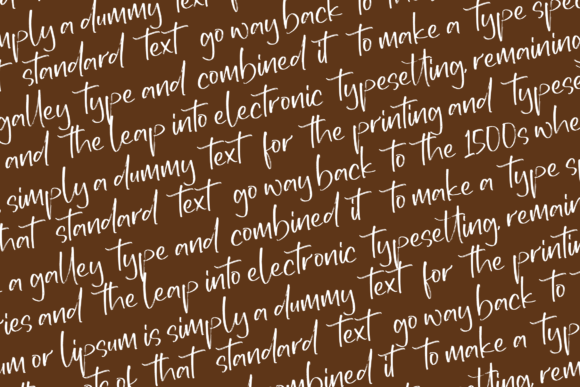 mply a dummy text
standard text go way back to
galley type and combined it to make a type spe
and the leap into electronic typesetting, remaining
simply a dummy text for the printing and typese
hat standard text go way back to the 1500s whe
a galley type and combined it to make a type sp
ries and the leap into electronic typesetting, remain
um or lipsum is simply a dummy text for the printin
ok that standard text go way back to
combined it to make a typ